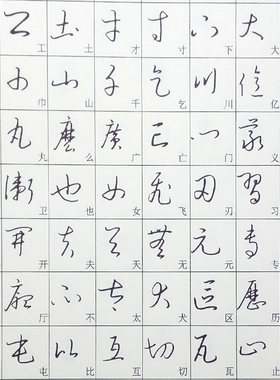 工 土 才 寸 下 大
巾 山 千 乞 川 亿
丸 么 广 亡 门 义
卫 也 女 飞 刃 习
开 夫 天 无 元 专
厅 不 太 犬 区 历
屯 比 互 切 瓦 止